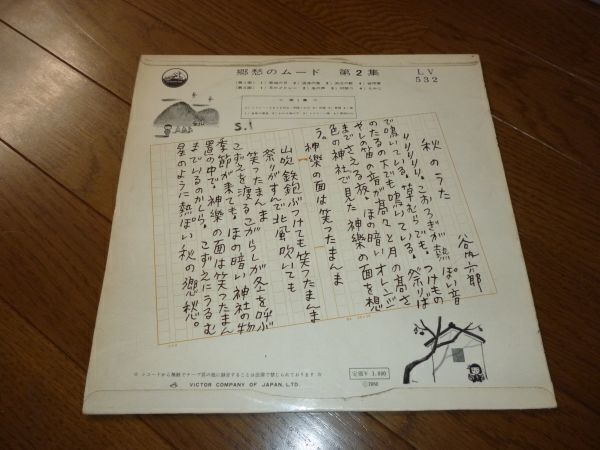 郷愁のムード 第2集
LV
532
S.1
秋のうた
谷内六郎
リリリリリ。こおろぎが熱っぽい音
で鳴いている。草むらでも。つけもの
のたるの下でも鳴いている。祭りば
やしの笛の音が高々と月の高さ
までさえる夜。ほの暗いオレンジ
色の神社で見た神樂の面を想
う。神樂の面は笑ったまんま
山吹鉄砲ぶつけても笑ったまんま
祭りがすんで北風吹いても
笑ったまんま
こずえを渡るこがらしが冬を呼ぶ
季節が来ても。ほの暗い神社の物
置の中で。神樂の面は笑ったまん
までいるのかしら。こずえにうるむ
星のように熱っぽい秋の郷愁。
☆ レコードから無断でテープ其の他に録音することは法律で禁じられております ☆
VICTOR COMPANY OF JAPAN, LTD.
定価¥ 1,800